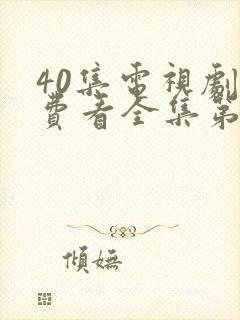 40集電視劇
費看全集第
傾嫵